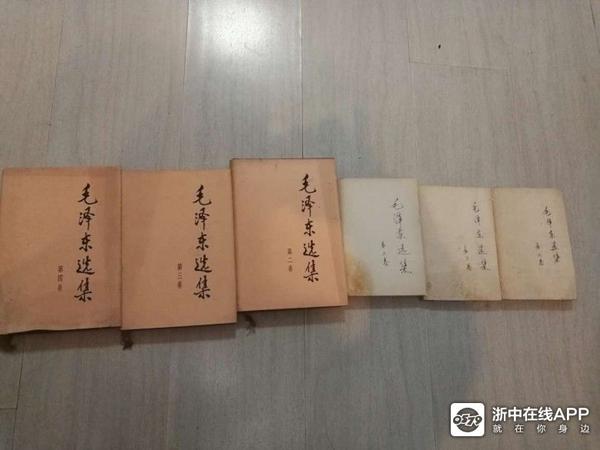 毛泽东选集
第四卷
毛泽东选集
第三卷
毛泽东选集
第二卷
毛泽东选集
毛泽东选集
毛泽东选集
浙中在线APP
就在你身边